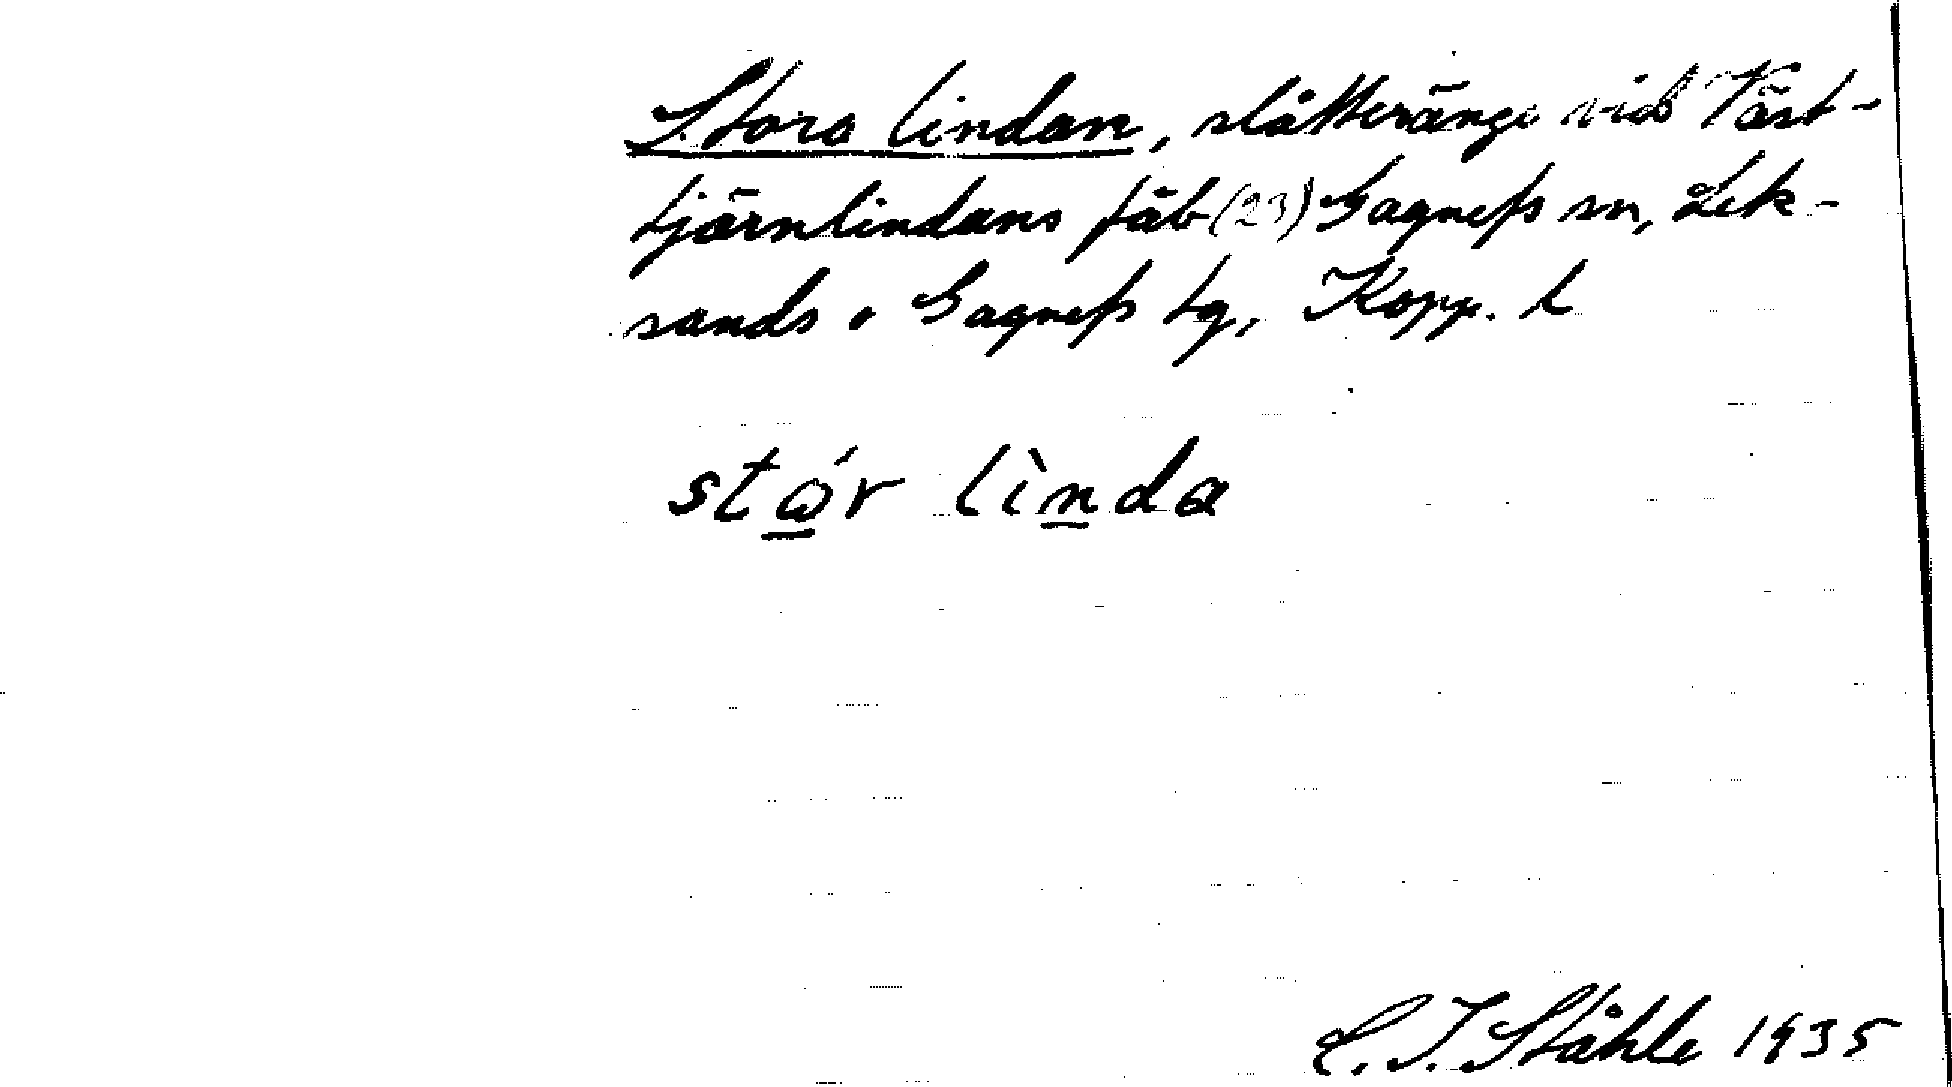 Stora lindan, slåtteränge vid Väst-
tjärnlindans fäb (23) Gagnefs sn, Lek-
sands o Gagnefs tg, Kopp. l
stώ̲r lìn̲da
C. I. Ståhle 1935